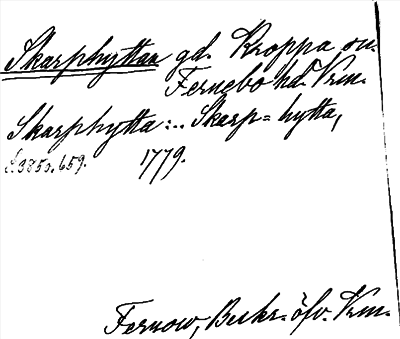 Skarphyttan gd. Kroppa sn.
Fernebo hd. Vrm.
Skarphytta:.. Skarp=hytta,
S. 385o, 659. 1779.
Fernow, Beskr. öfv. Vrm.